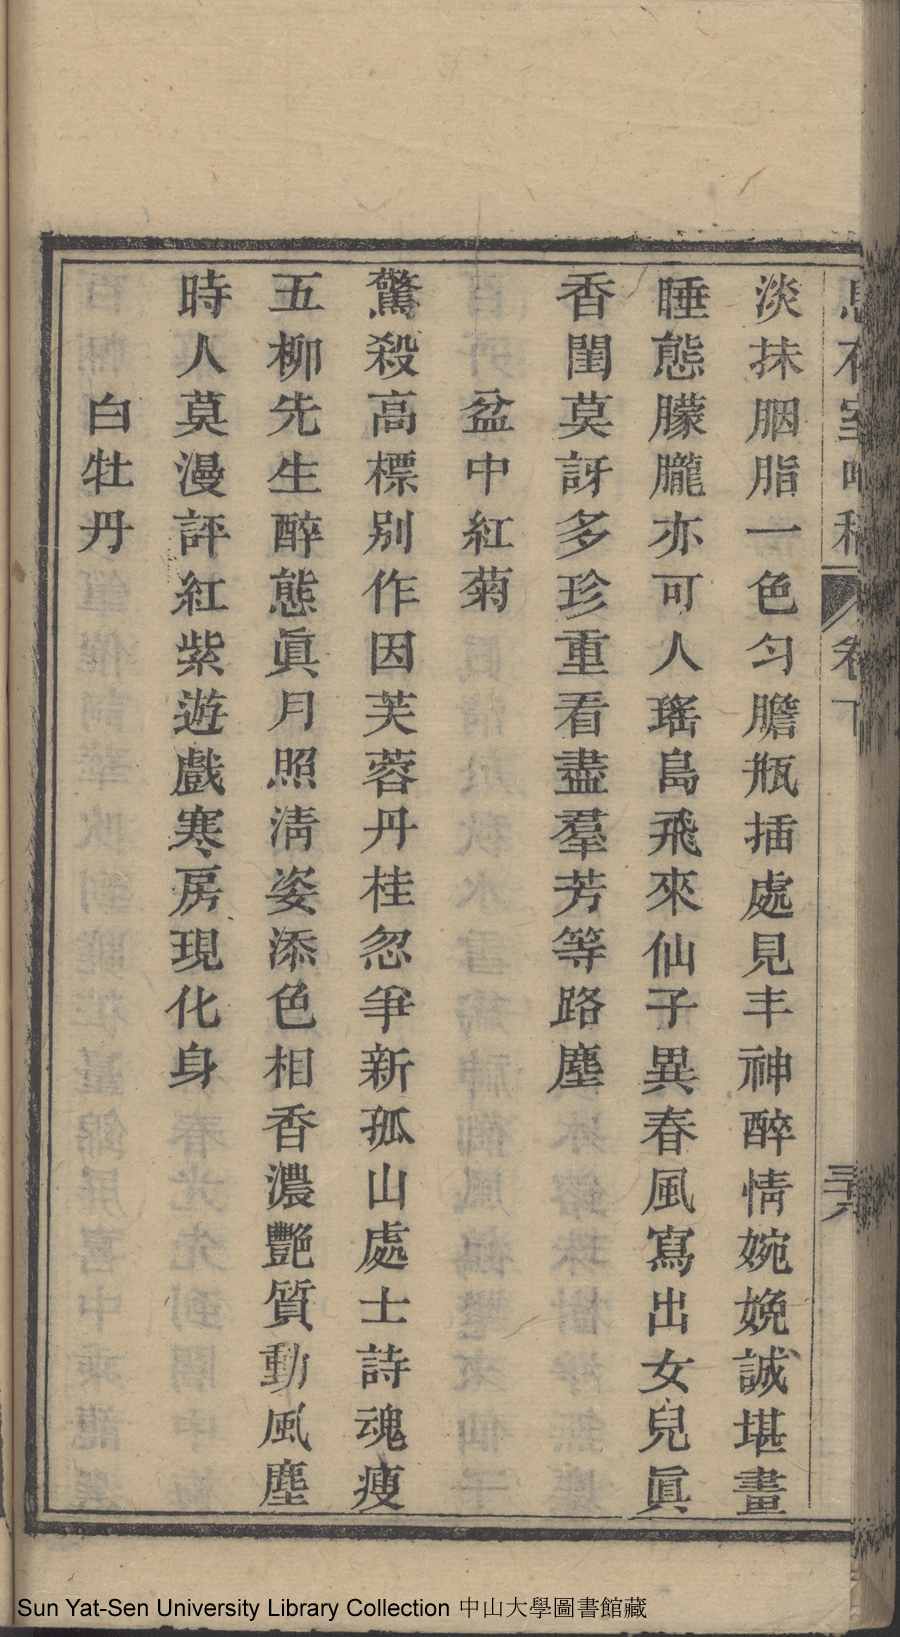 卷下
淡抹胭脂一色勻膽瓶插處見丰神醉情婉娩誠堪畫
睡態朦朧亦可人瑤島飛來仙子異春風寫出女兒眞
香閨莫訝多珍重看盡羣芳等路塵
盆中紅菊
驚殺高標别作因芙蓉丹桂忽爭新孤山處士詩魂瘦
五柳先生醉態眞月照淸姿添色相香濃艷質動風塵
時人莫漫評紅紫遊戲寒房現化身
白牡丹
Sun Yat-Sen University Library Collection 中山大學圖書館藏